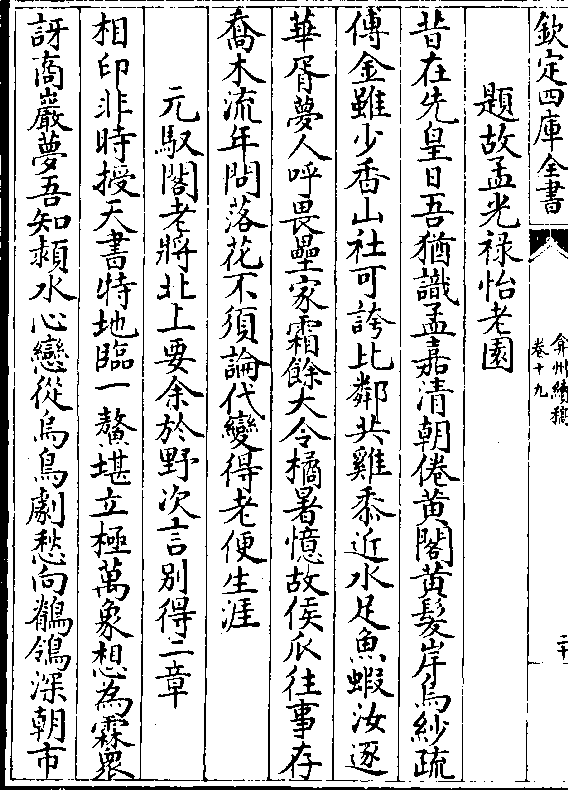 欽定四庫全書
弇州續稿
卷十九
二十
題故孟光禄怡老園
昔在先皇日吾猶識孟嘉清朝倦黄閣黄髮岸烏紗疏
傅金雖少香山社可誇比鄰共雞黍近水足魚蝦汝逐
華胥夢人呼畏壘家霜餘大令橘暑憶故侯瓜往事存
喬木流年問落花不須論代變得老便生涯
元馭閣老將北上要余於野次言别得二章
相印非時授天書特地臨一鰲堪立極萬象想為霖衆
訝商巖夢吾知潁水心戀從烏鳥劇愁向鶺鴒深朝市